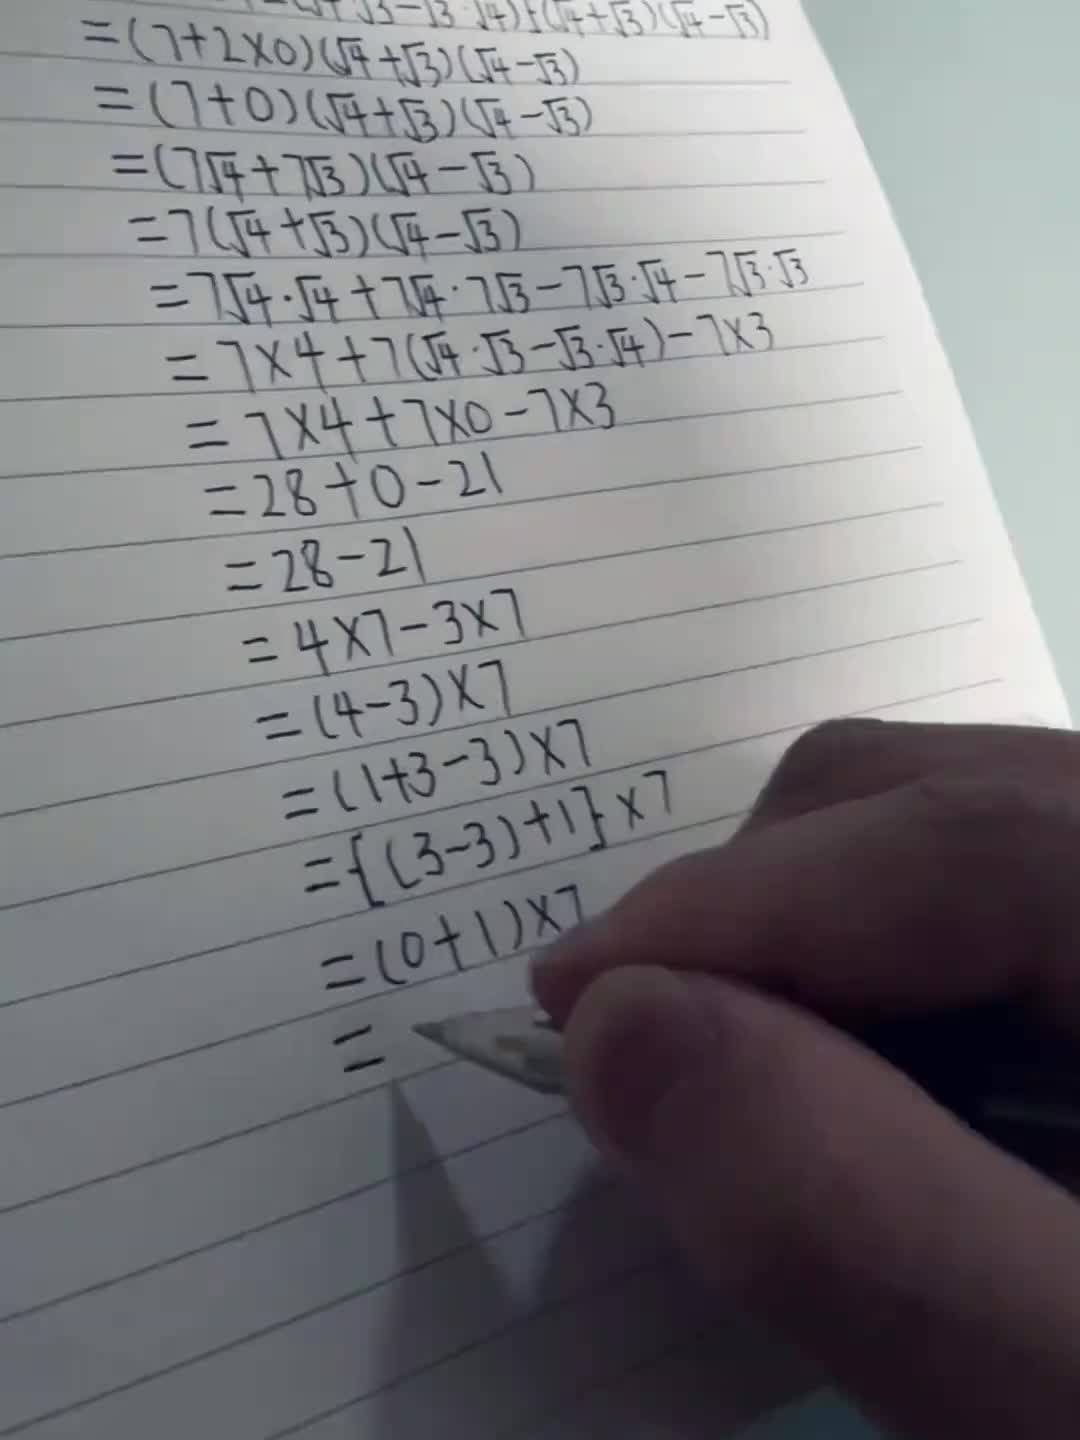 √3-√3·√4)}(√4+√3)(√4-√3)
=(7+2×0)(√4+√3)(√4-√3)
=(7+0)(√4+√3)(√4-√3)
=(7√4+7√3)(√4-√3)
=7(√4+√3)(√4-√3)
=7√4·√4+7√4·7√3-7√3·√4-7√3·√3
=7×4+7(√4·√3-√3·√4)-7×3
=7×4+7×0-7×3
=28+0-21
=28-21
=4×7-3×7
=(4-3)×7
=(1+3-3)×7
={(3-3)+1}×7
=(0+1)×7
=